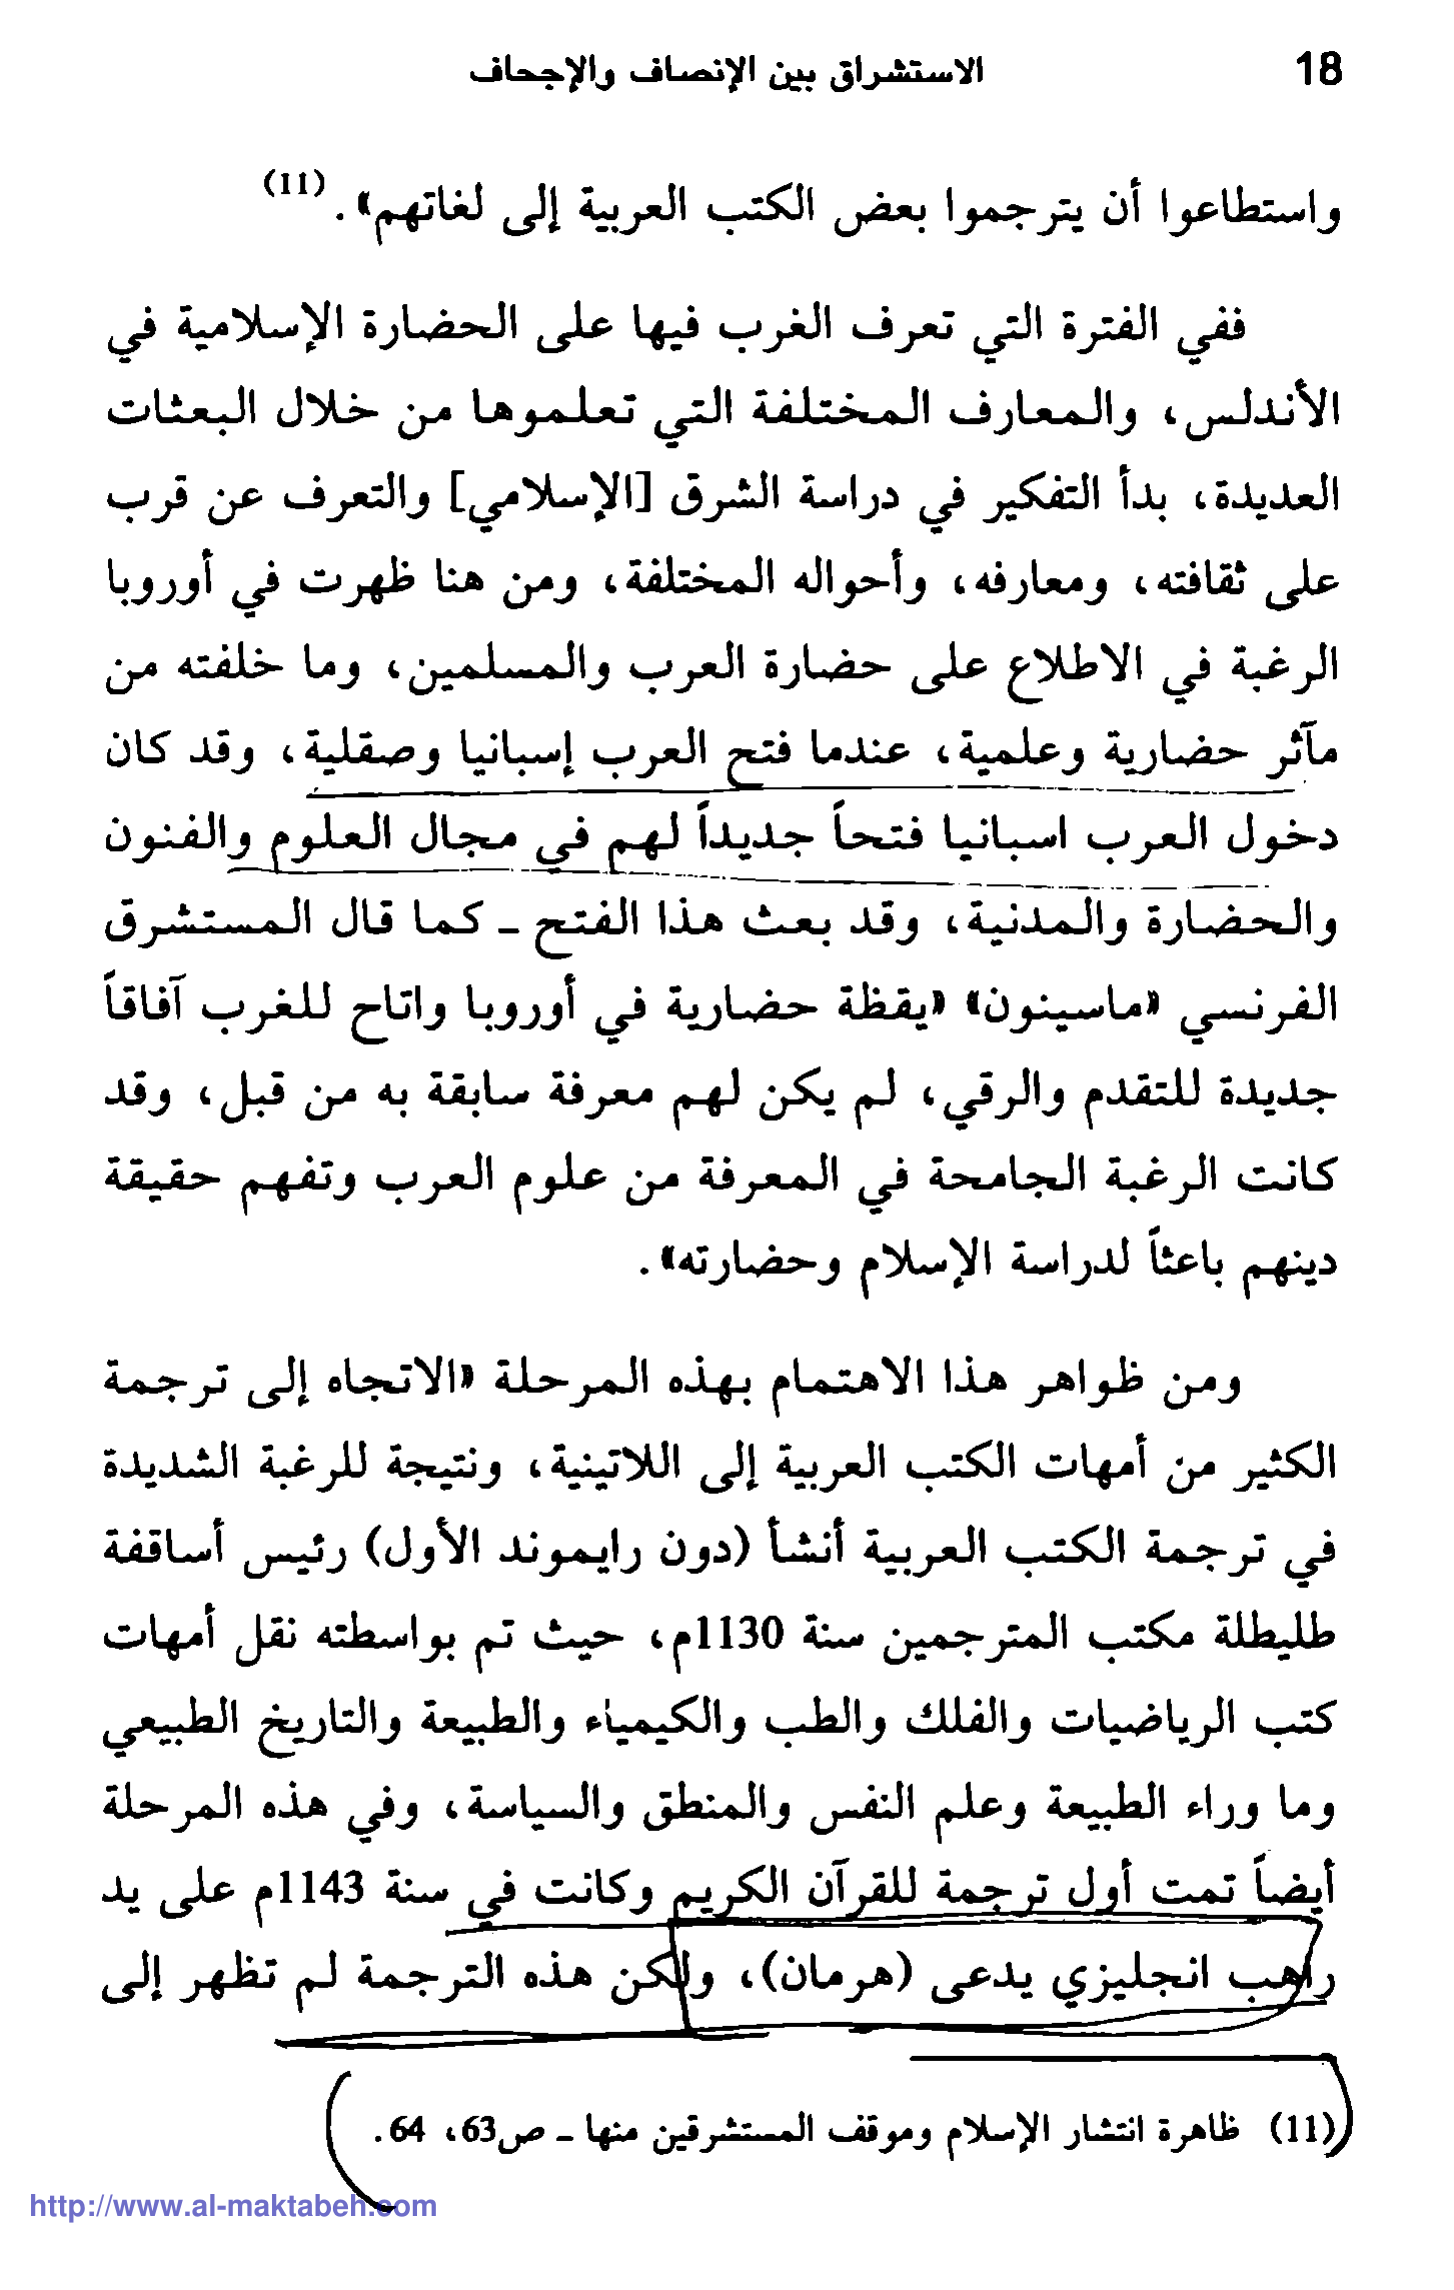 18
الاستشراق بين الإنصاف والإجحاف
واستطاعوا أن يترجموا بعض الكتب العربية إلى لغاتهم». (11)
ففي الفترة التي تعرف الغرب فيها على الحضارة الإسلامية في
الأندلس، والمعارف المختلفة التي تعلموها من خلال البعثات
العديدة، بدأ التفكير في دراسة الشرق [الإسلامي] والتعرف عن قرب
على ثقافته، ومعارفه، وأحواله المختلفة، ومن هنا ظهرت في أوروبا
الرغبة في الاطلاع على حضارة العرب والمسلمين، وما خلفته من
مآثر حضارية وعلمية، عندما فتح العرب إسبانيا وصقلية، وقد كان
دخول العرب اسبانيا فتحاً جديداً لهم في مجال العلوم والفنون
والحضارة والمدنية، وقد بعث هذا الفتح - كما قال المستشرق
الفرنسي «ماسينون» «يقظة حضارية في أوروبا واتاح للغرب آفاقاً
جديدة للتقدم والرقي، لم يكن لهم معرفة سابقة به من قبل، وقد
كانت الرغبة الجامحة في المعرفة من علوم العرب وتفهم حقيقة
دينهم باعثاً لدراسة الإسلام وحضارته».
ومن ظواهر هذا الاهتمام بهذه المرحلة «الاتجاه إلى ترجمة
الكثير من أمهات الكتب العربية إلى اللاتينية، ونتيجة للرغبة الشديدة
في ترجمة الكتب العربية أنشأ (دون رايموند الأول) رئيس أساقفة
طليطلة مكتب المترجمين سنة 1130م، حيث تم بواسطته نقل أمهات
كتب الرياضيات والفلك والطب والكيمياء والطبيعة والتاريخ الطبيعي
وما وراء الطبيعة وعلم النفس والمنطق والسياسة، وفي هذه المرحلة
أيضاً تمت أول ترجمة للقرآن الكريم وكانت في سنة 1143م على يد
راهب انجليزي يدعى (هرمان)، ولكن هذه الترجمة لم تظهر إلى
(11) ظاهرة انتشار الإسلام وموقف المستشرقين منها - ص63، 64.
http://www.al-maktabeh.com